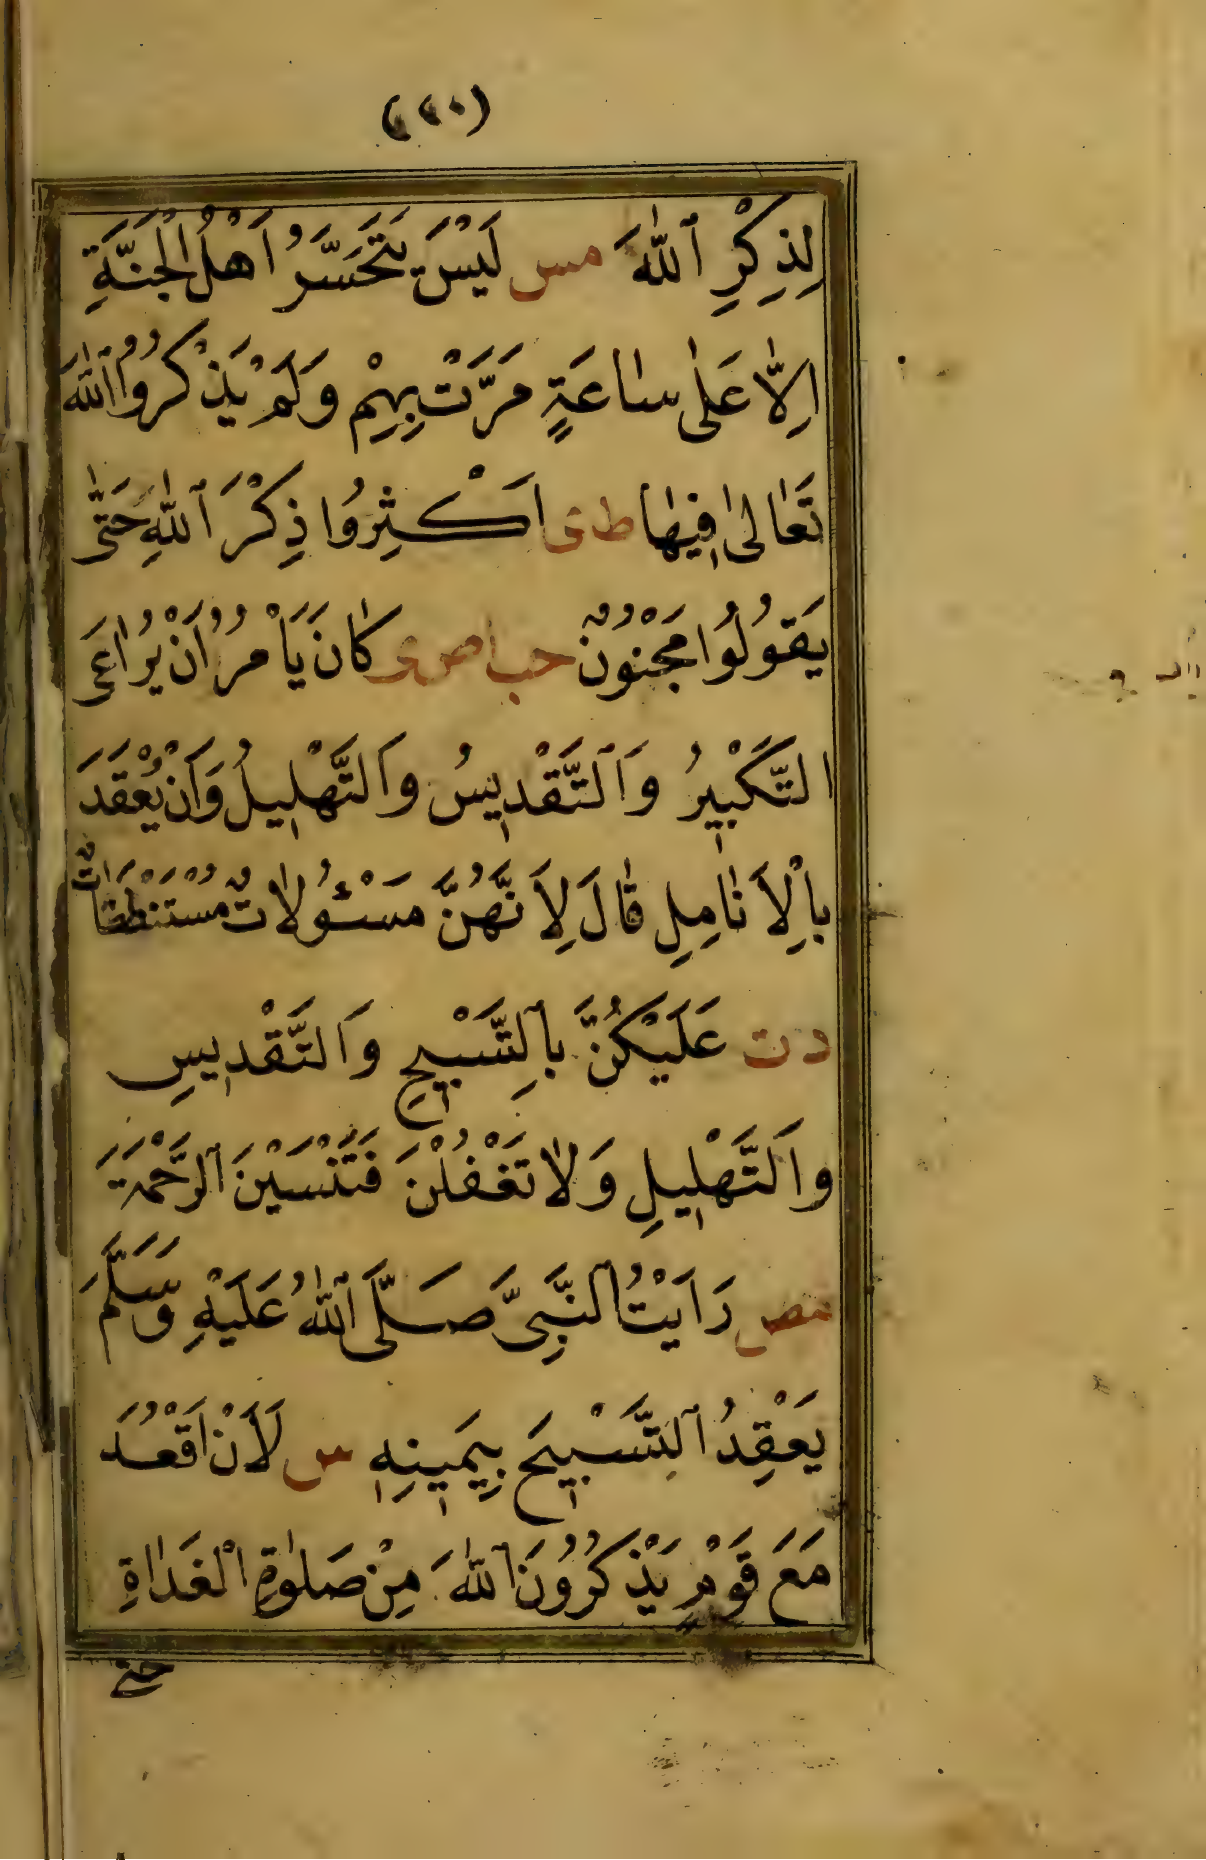 (٢٢٠)
لِذِكْرِ اللّٰهِ مس لَيْسَ يَتَحَسَّرُ اَهْلُ الْجَنَّةِ
اِلَّا عَلٰى سَاعَةٍ مَرَّتْ بِهِمْ وَلَمْ يَذْكُرُوا اللّٰهَ
تَعَالٰى فِيهَا ط ى اَكْثِرُوا ذِكْرَ اللّٰهِ حَتّٰى
يَقُولُوا مَجْنُونٌ حب ا ص ى كَانَ يَاْمُرُ اَنْ يُرَاعَى
التَّكْبِيرُ وَالتَّقْدِيسُ وَالتَّهْلِيلُ وَاَنْ يُعْقَدَ
بِالْاَنَامِلِ قَالَ لِاَنَّهُنَّ مَسْئُولَاتٌ مُسْتَنْطَقَاتٌ
د ت عَلَيْكُنَّ بِالتَّسْبِيحِ وَالتَّقْدِيسِ
وَالتَّهْلِيلِ وَلَا تَغْفُلْنَ فَتَنْسَيْنَ الرَّحْمَةَ
مص رَاَيْتُ النَّبِيَّ صَلَّى اللّٰهُ عَلَيْهِ وَسَلَّمَ
يَعْقِدُ التَّسْبِيحَ بِيَمِينِهِ س لَاَنْ اَقْعُدَ
مَعَ قَوْمٍ يَذْكُرُونَ اللّٰهَ مِنْ صَلٰوةِ الْغَدَاةِ
حتى